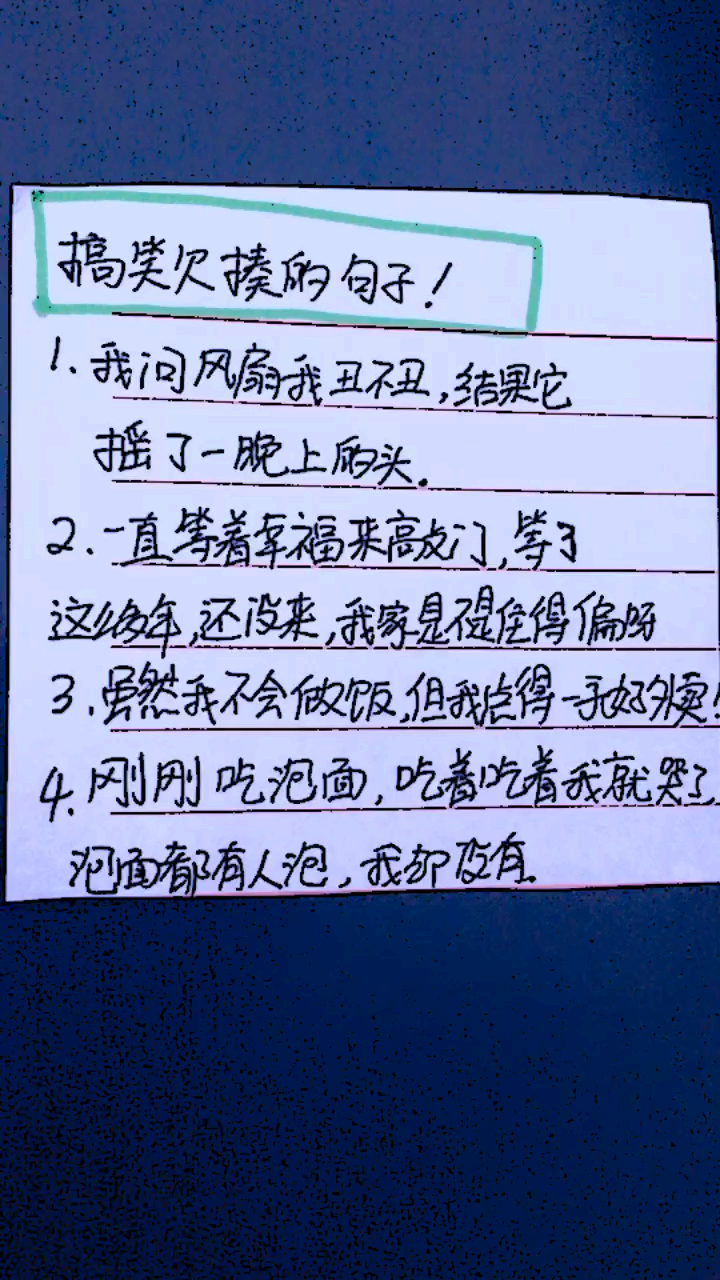 搞笑欠揍的句子！
1.我问风扇我丑不丑,结果它
摇了一晚上的头.
2.一直等着幸福来敲门,等了
这么多年,还没来,我家是不是住得偏呀
3.虽然我不会做饭,但我点得一手好外卖!
4.刚刚吃泡面,吃着吃着我就哭了,
泡面都有人泡,我却没有.